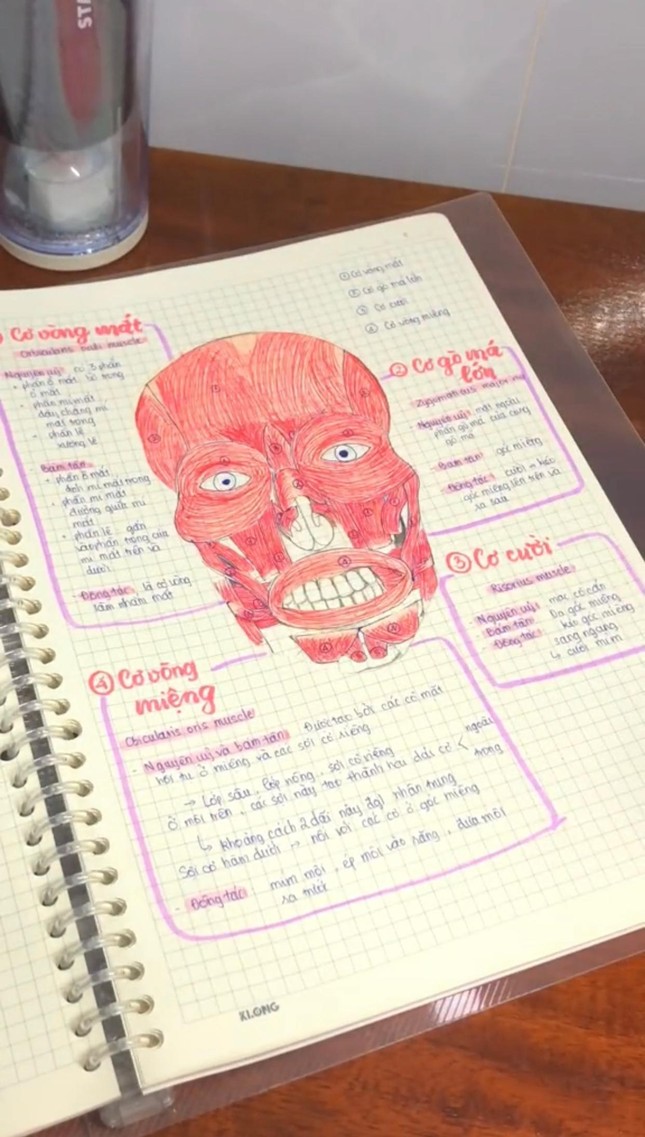 STA
① Cơ vòng mắt
② Cơ gò má lớn
③ Cơ cười
④ Cơ vòng miệng
Cơ vòng mắt
Nguyên uỷ: có 3 phần
+ phần ổ mắt
ổ mắt
+ phần mi mắt
mi
mắt trong
+ phần lệ
xương lệ
Bám tận
+ phần ổ mắt
mi mắt trong
+ phần mi mắt
đường giữa mi
mắt
+ phần lệ gần
phần trong của
mi mắt trên và
dưới
- Động tác
nhắm mắt
② Cơ gò má
lớn
Zygomaticus major
Nguyên uỷ: mặt ngoài
của cung
gò má
Bám tận: góc miệng
Động tác: cười → kéo
góc miệng lên trên và
ra sau
③ Cơ cười
Risorius muscle
Nguyên uỷ: mạc cơ cắn
Bám tận: Da góc miệng
Động tác: kéo góc miệng
sang ngang
↳ cười mỉm
④ Cơ vòng
miệng
Obicularis oris muscle
- Nguyên uỷ và bám tận: Được tạo bởi các cơ mặt
hội tụ ở miệng và các sợi cơ riêng
→ Lớp sâu, lớp nông, sợi cơ riêng
Ở môi trên, các sợi này tạo thành hai dải cơ < ngoài
trong
↳ khoảng cách 2 dải này đgl nhân trung
Sợi cơ hàm dưới → nối với các cơ ở góc miệng
- Động tác: mím môi, ép môi vào răng, đưa môi
ra trước
KLONG